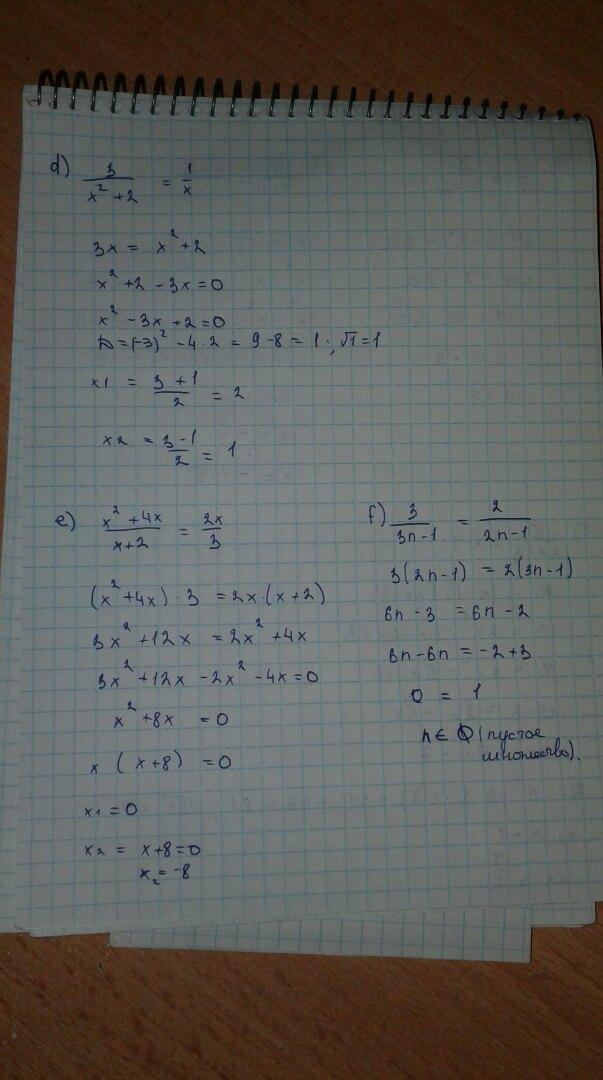 d) 3/(x²+2) = 1/x
3x = x²+2
x²+2-3x=0
x²-3x+2=0
D=(-3)²-4·2=9-8=1; √1=1
x1 = (3+1)/2 = 2
x2 = (3-1)/2 = 1.
e) (x²+4x)/(x+2) = 2x/3
(x²+4x)·3 =2x·(x+2)
3x²+12x =2x²+4x
3x²+12x-2x²-4x=0
x²+8x =0
x (x+8) =0
x1=0
x2 = x+8=0
x₂=-8
f) 3/(3n-1) = 2/(2n-1)
3(2n-1) =2(3n-1)
6n-3 =6n-2
6n-6n=-2+3
0 = 1
n∈ Ø (пустое
множество).